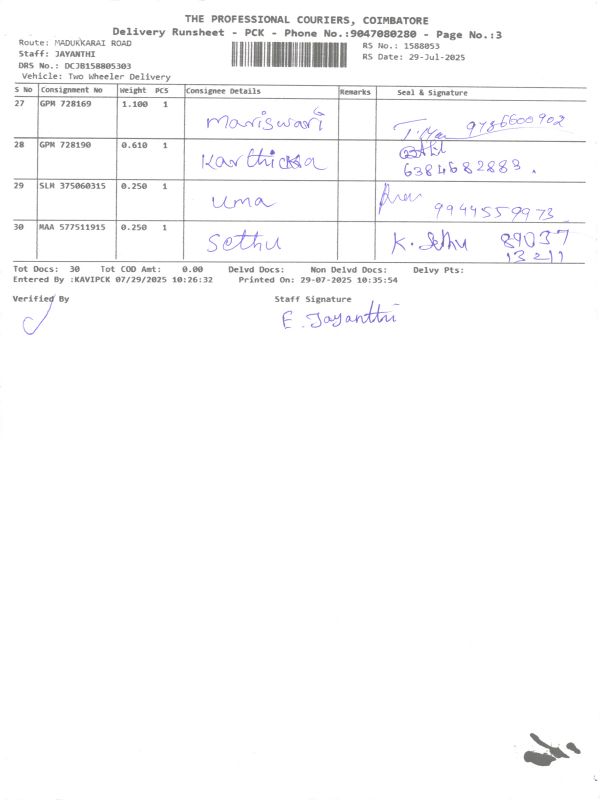 THE PROFESSIONAL COURIERS, COIMBATORE
Delivery Runsheet - PCK - Phone No.:9047080280 - Page No.:3
Route: MADUKKARAI ROAD RS No.: 1588053
Staff: JAYANTHI RS Date: 29-Jul-2025
DRS No.: DCJB158805303
Vehicle: Two Wheeler Delivery
S No Consignment No Weight PCS Consignee Details Remarks Seal & Signature
27 GPM 728169 1.100 1 Mariswari 9786600902
28 GPM 728190 0.610 1 Karthicka
6384682883.
29 SLM 375060315 0.250 1 Uma
9944559973
30 MAA 577511915 0.250 1 Sethu K. Sethu 89037
13211
Tot Docs: 30 Tot COD Amt: 0.00 Delvd Docs: Non Delvd Docs: Delvy Pts:
Entered By :KAVIPCK 07/29/2025 10:26:32 Printed On: 29-07-2025 10:35:54
Verified By Staff Signature
E. Jayanthi